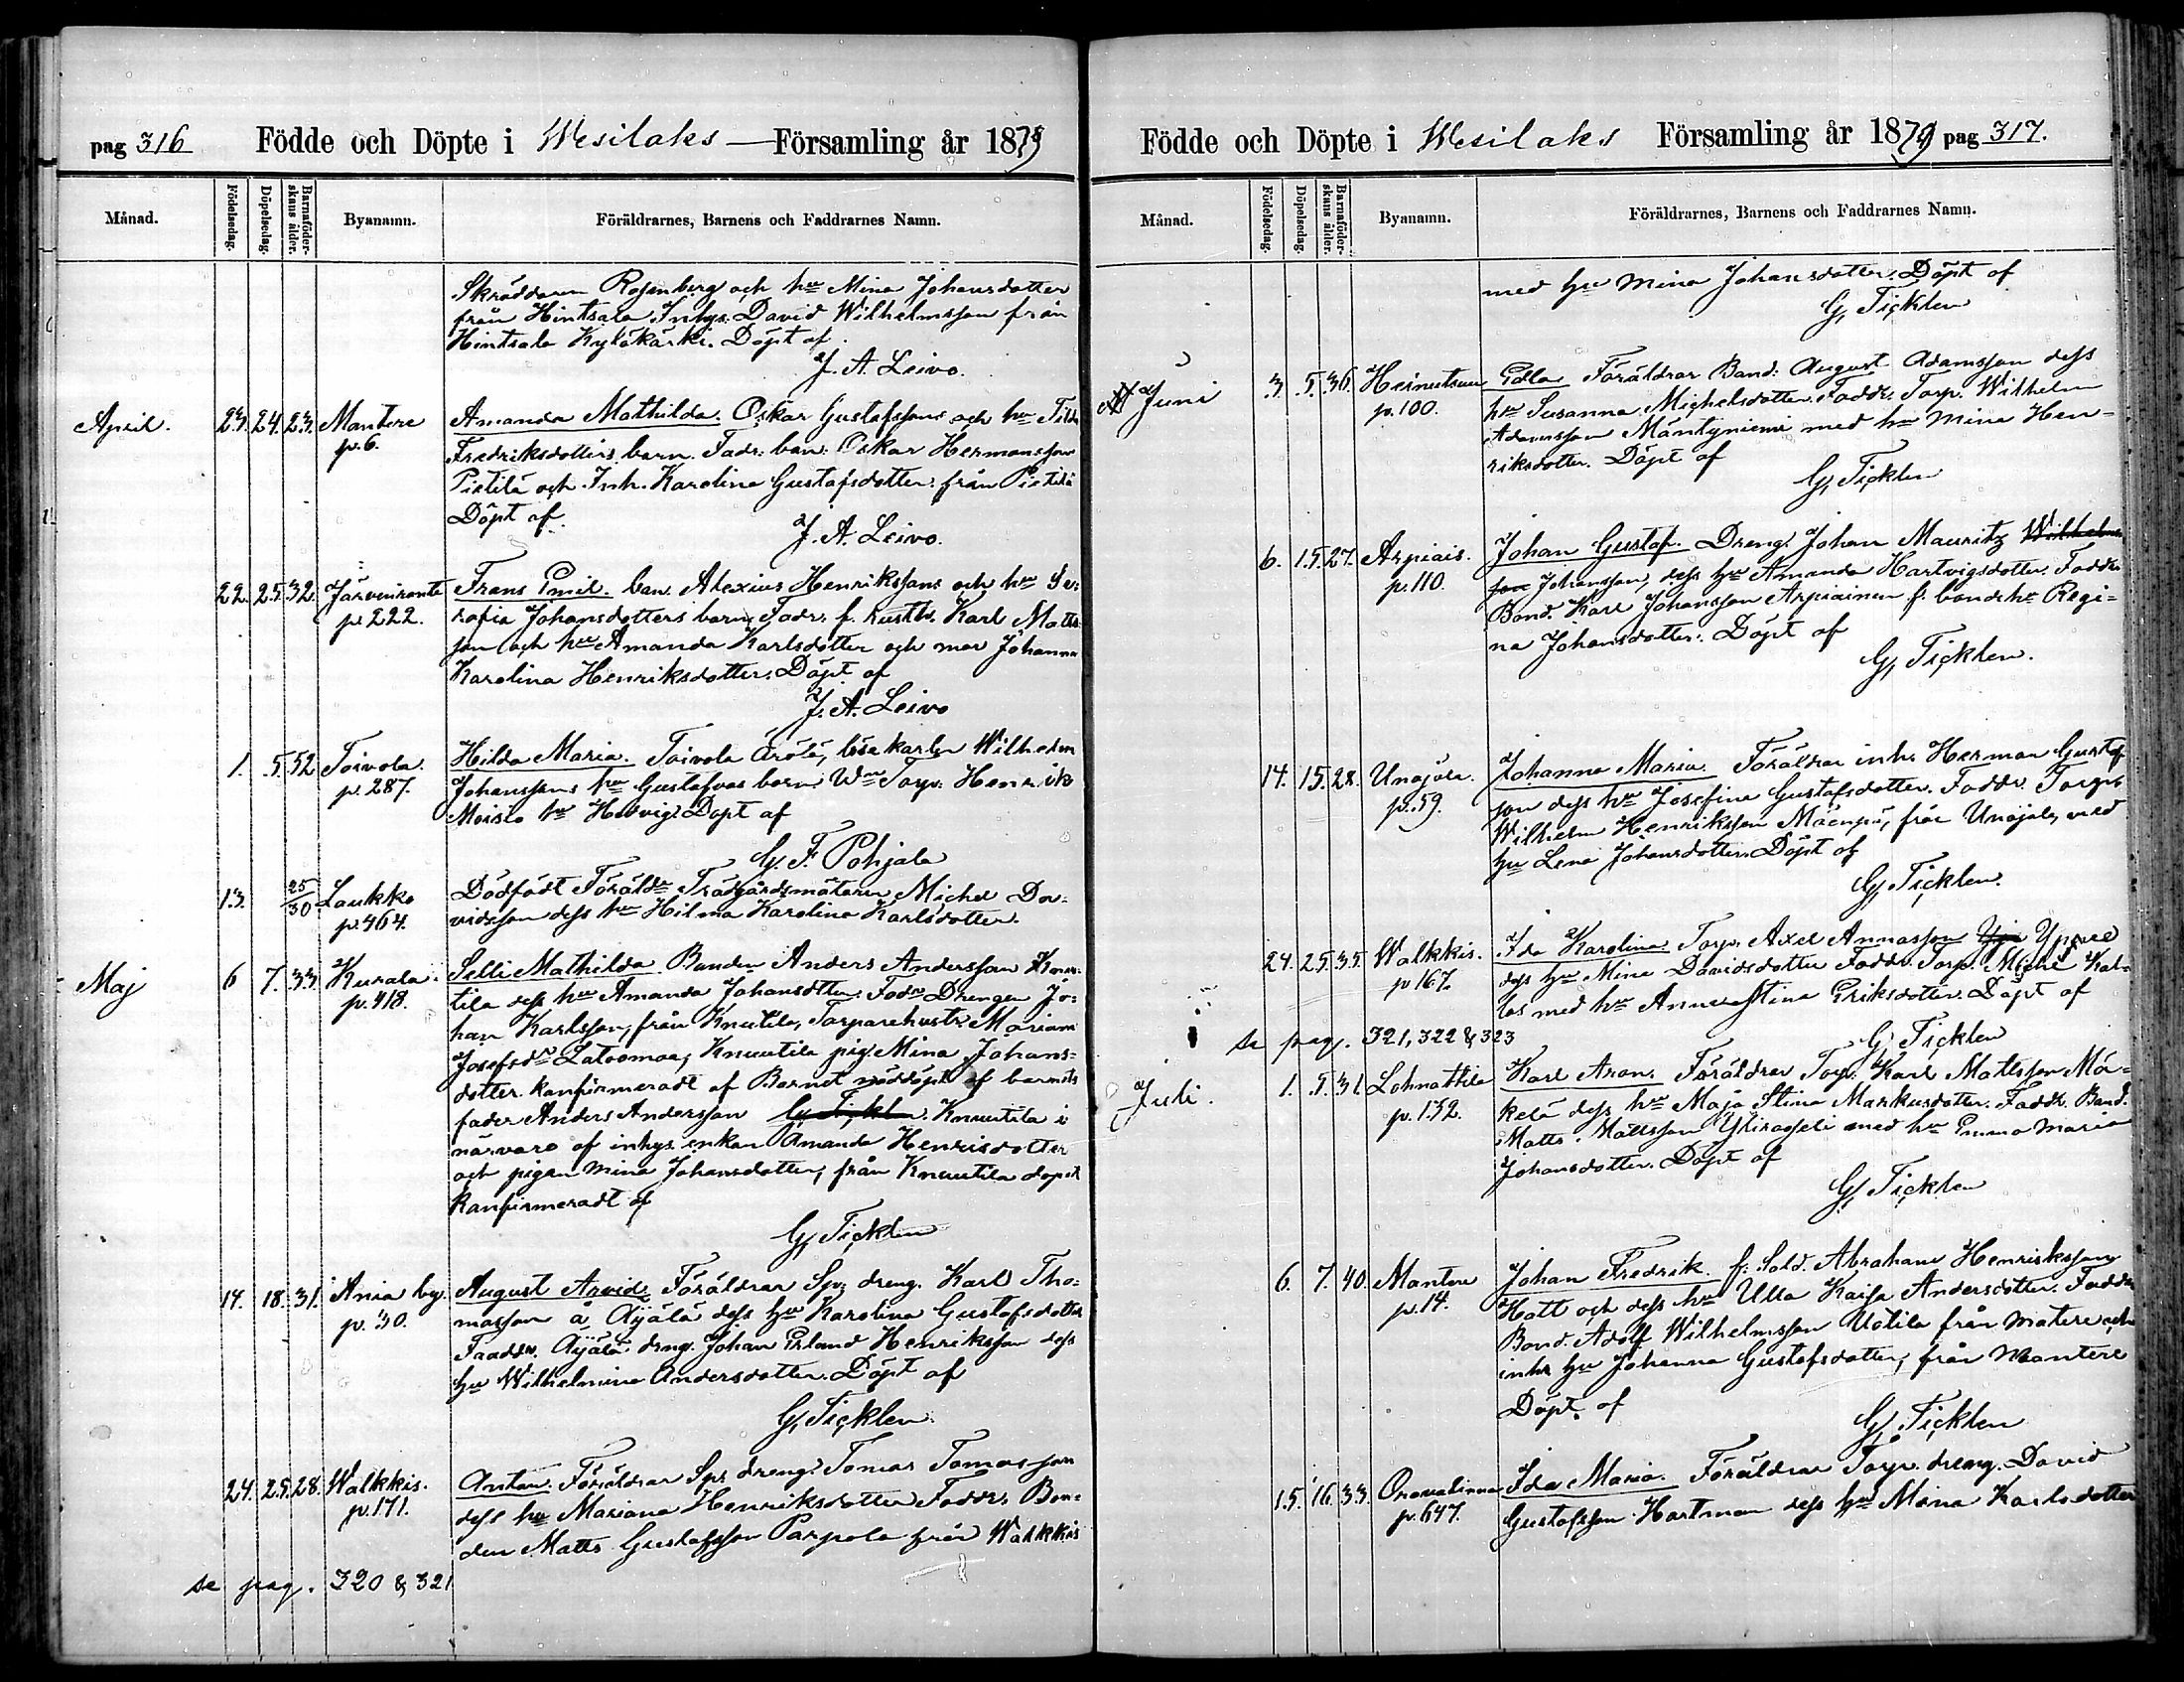 pag 316 Födde och Döpte i Wesilaks Församling år 1879
Månad. Födelsedag. Döpelsedag. Barnaföderskans ålder. Byanamn. Föräldrarnes, Barnens och Faddrarnes Namn.
Skräddaren Rosenberg och hu Mina Johansdotter
från Hintsala Inhys. David Wilhelmsson från
Hintsala Kyläkärki. Döpt af
J. A. Leivo.
April. 23. 24. 23. Mantere Amanda Mathilda. Oskar Gustafssons och hu Tilda
p. 6. Fredriksdotters barn. Fadr. bon. Oskar Hermansson
Pietilä och Inh. Karolina Gustafsdotter från Pietilä
Döpt af
J. A. Leivo.
22. 25. 32. Järvenranta Frans Emil. bon. Alexius Henrikssons och hu Se-
p. 222. rafia Johansdotters barn Fadr. f. rusth. Karl Matts
son och hu Amanda Karlsdotter och mor Johanna
Karolina Henriksdotter. Döpt af
J. A. Leivo
1. 5. 52 Toivola Hilda Maria. Toivola lösekarlen Wilhelm
p. 287. Johanssons hu Gustafvas barn Torp. Henrik
Moisio hu Hedvig Döpt af
G. F. Pohjala
13. 25/30 Laukko Dödfödt Föräldr Trädgårdsmästaren Michel Da-
p. 464. vidsson dess hu Hilma Karolina Karlsdotter.
Maj 6 7. 33 Kurala. Selli Mathilda Bonden Anders Andersson Knuu-
p. 418. tila dess hu Amanda Johansdtter. Fadr Drengen Jo-
han Karlsson, från Knutila, Torparehustr. Mariana
Josefsdr Latoomaa, Knuutila pig. Mina Johans-
dotter. Konfirmeradt af Barnet nöddöpt af barnets
fader Anders Andersson G. Ticklen. Knuutila i
närvaro af inhys. enkan Amanda Henriksdotter
och pigan Mina Johansdotter, från Knuutila döpet
konfirmeradt af
G. Ticklen
14. 18. 31. Ania by. August Arvid Föräldrar Sp. dreng. Karl Tho-
p. 30. masson å Äijälä dess hu Karolina Gustafsdotter
Faaddr. Äijälä dreng. Johan Erland Henriksson dess
hu Wilhelmina Andersdotter. Döpt af
G. Ticklen.
24. 25. 28. Walkkis. Anton. Föräldrar Sp. dreng. Tomas Tomasson
p. 171. dess hu Mariana Henriksdotter Faddr. Bon-
den Matts Gustafsson Parpola från Walkkis
se pag. 320 & 321
Födde och Döpte i Wesilaks Församling år 1879 pag 317.
Månad. Födelsedag. Döpelsedag. Barnaföderskans ålder. Byanamn. Föräldrarnes, Barnens och Faddrarnes Namn.
med hu Mina Johansdotter. Döpt af
G. Ticklen
Juni 3. 5. 36. Heinutsuu Edla Föräldrar Bond. August Adamsson dess
p. 100. hu Susanna Michelsdotter. Faddr. Torp. Wilhelm
Adamsson Mäntyniemi med hu Mina Hen-
riksdotter. Döpt af
G. Ticklen
6. 15. 27. Arpiais. Johan Gustaf. Dreng. Johan Mauritz Wilhelms
p. 110. son Johansson, dess hu Amanda Hartvigsdotter. Faddr.
Bond. Karl Johansson Arpiainen f. bondehu Regi-
na Johansdotter. Döpt af
G. Ticklen.
14. 15. 28. Unajala. Johanna Maria. Föräldrar inhs Herman Gustaf
p. 59. son dess hu Josefina Gustafsdotter. Faddr. Torp.
Wilhelm Henriksson Mäenpä, från Unajala, med
hu Lena Johansdotter. Döpt af
G. Ticklen.
24. 25. 35. Walkkis. Ida Karolina. Torp. Axel Annasson
p 167. dess hu Mina Davidsdotter Faddr. Torp. Michel Kal-
las med hu Annastina Eriksdotter. Döpt af
se pag. 321, 322 & 323 G. Ticklen
Juli. 1. 5. 31. Lohnattila Karl Aron. Föräldrar Torp. Karl Mattsson Mä-
p. 132. kelä dess hu Maja Stina Markusdotter. Faddr. Bond.
Matts. Mattsson med hu Emma Maria
Johansdotter. Döpt af
G. Ticklen
6. 7. 40. Mantere Johan Fredrik. f. Sold. Abraham Henriksson
p. 14. Hatt och dess hu Ulla Kajsa Andersdotter. Faddr.
Bond. Adolf Wilhelmsson Uotila från Matere och
inhs hu Johanna Gustafsdotter, från Mantere
Döpt. af
G. Ticklen
15. 16. 33. Onnvalinna Ida Maria. Föräldrar Torp. dreng. David
p. 647. Gustafsson Hartman dess hu Mina Karlsdotter